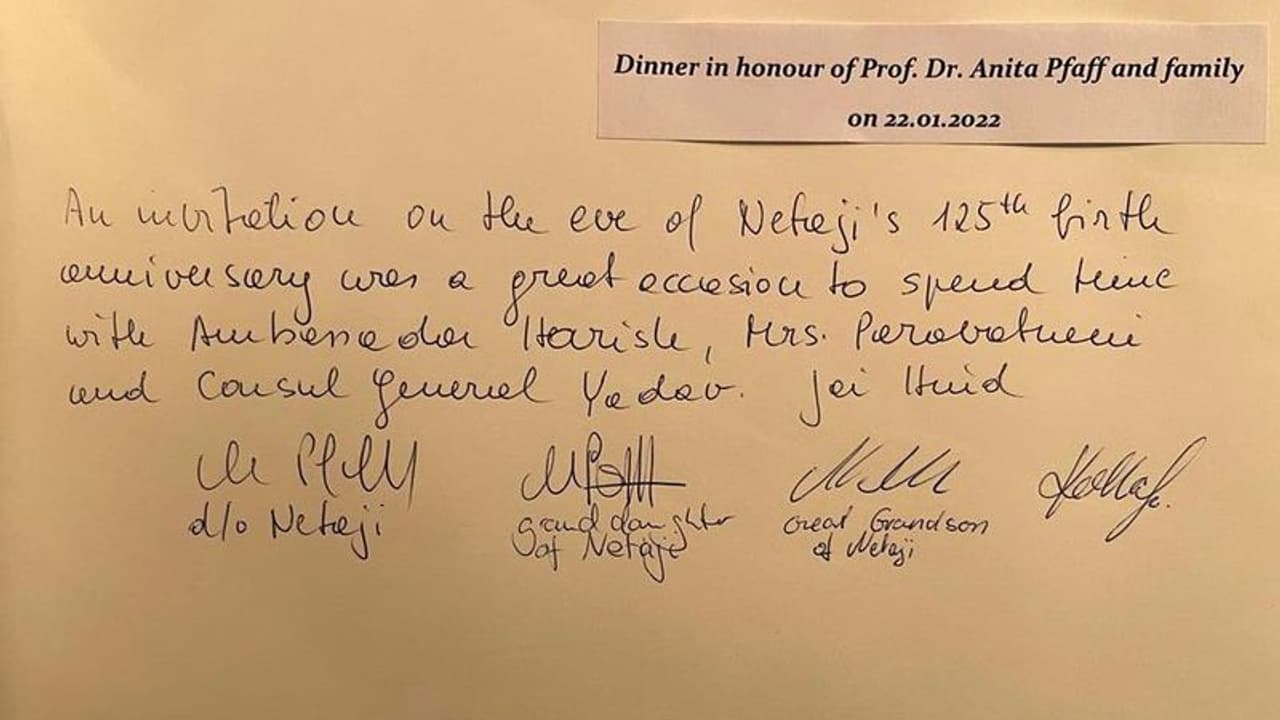 Dinner in honour of Prof. Dr. Anita Pfaff and family
on 22.01.2022
An invitation on the eve of Netaji's 125th birth
anniversary was a great occasion to spend time
with Ambassador Harish, Mrs. Parvatneni
and Consul General Yadav. Jai Hind
d/o Netaji
Grand daughter
of Netaji
Great Grandson
of Netaji